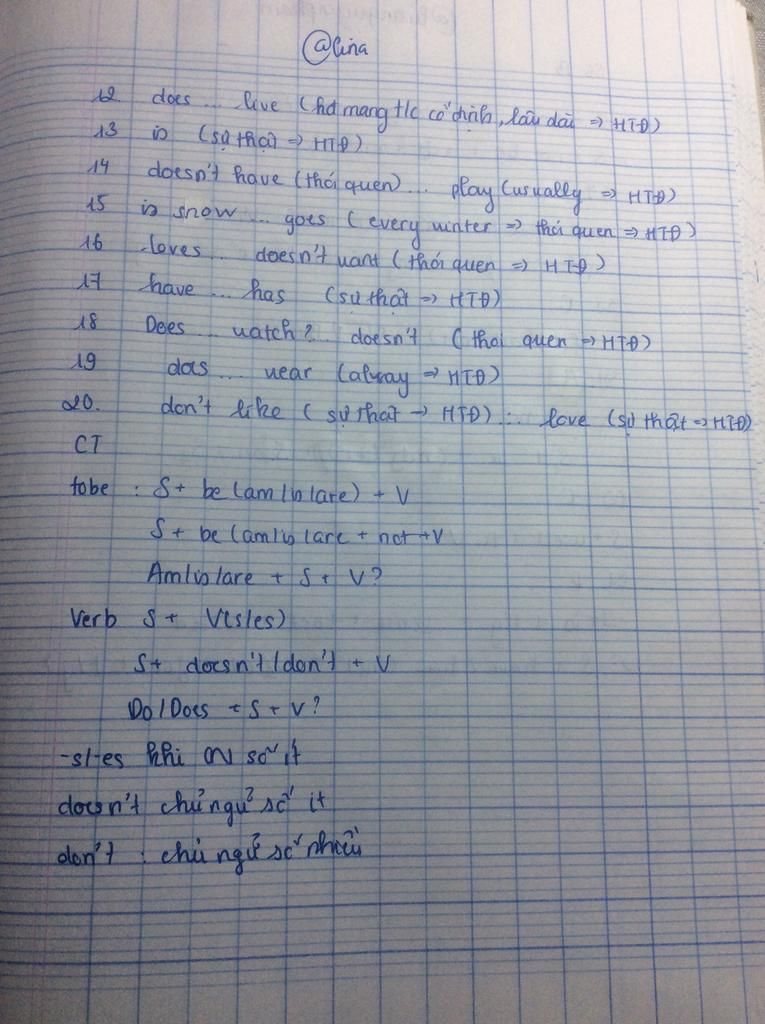 @lina
12 does ... live (hđ mang t/c cố định, lâu dài => HTĐ)
13 is (sự thật => HTĐ)
14 doesn't have (thói quen) ... play (usually => HTĐ)
15 is snow ... goes (every winter => thói quen => HTĐ)
16 loves ... doesn't want (thói quen => HTĐ)
17 have ... has (sự thật => HTĐ)
18 Does ... watch? doesn't (thói quen => HTĐ)
19 does ... wear (alway => HTĐ)
20. don't like (sự thật -> HTĐ) ... love (sự thật => HTĐ)
CT
tobe : S + be (am/is/are) + V
S + be (am/is/are + not + V
Am/is/are + S + V?
Verb S + V(s/es)
S + doesn't/don't + V
Do/Does + S + V?
-s/-es khi CN số ít
doesn't chủ ngữ số ít
don't : chủ ngữ số nhiều